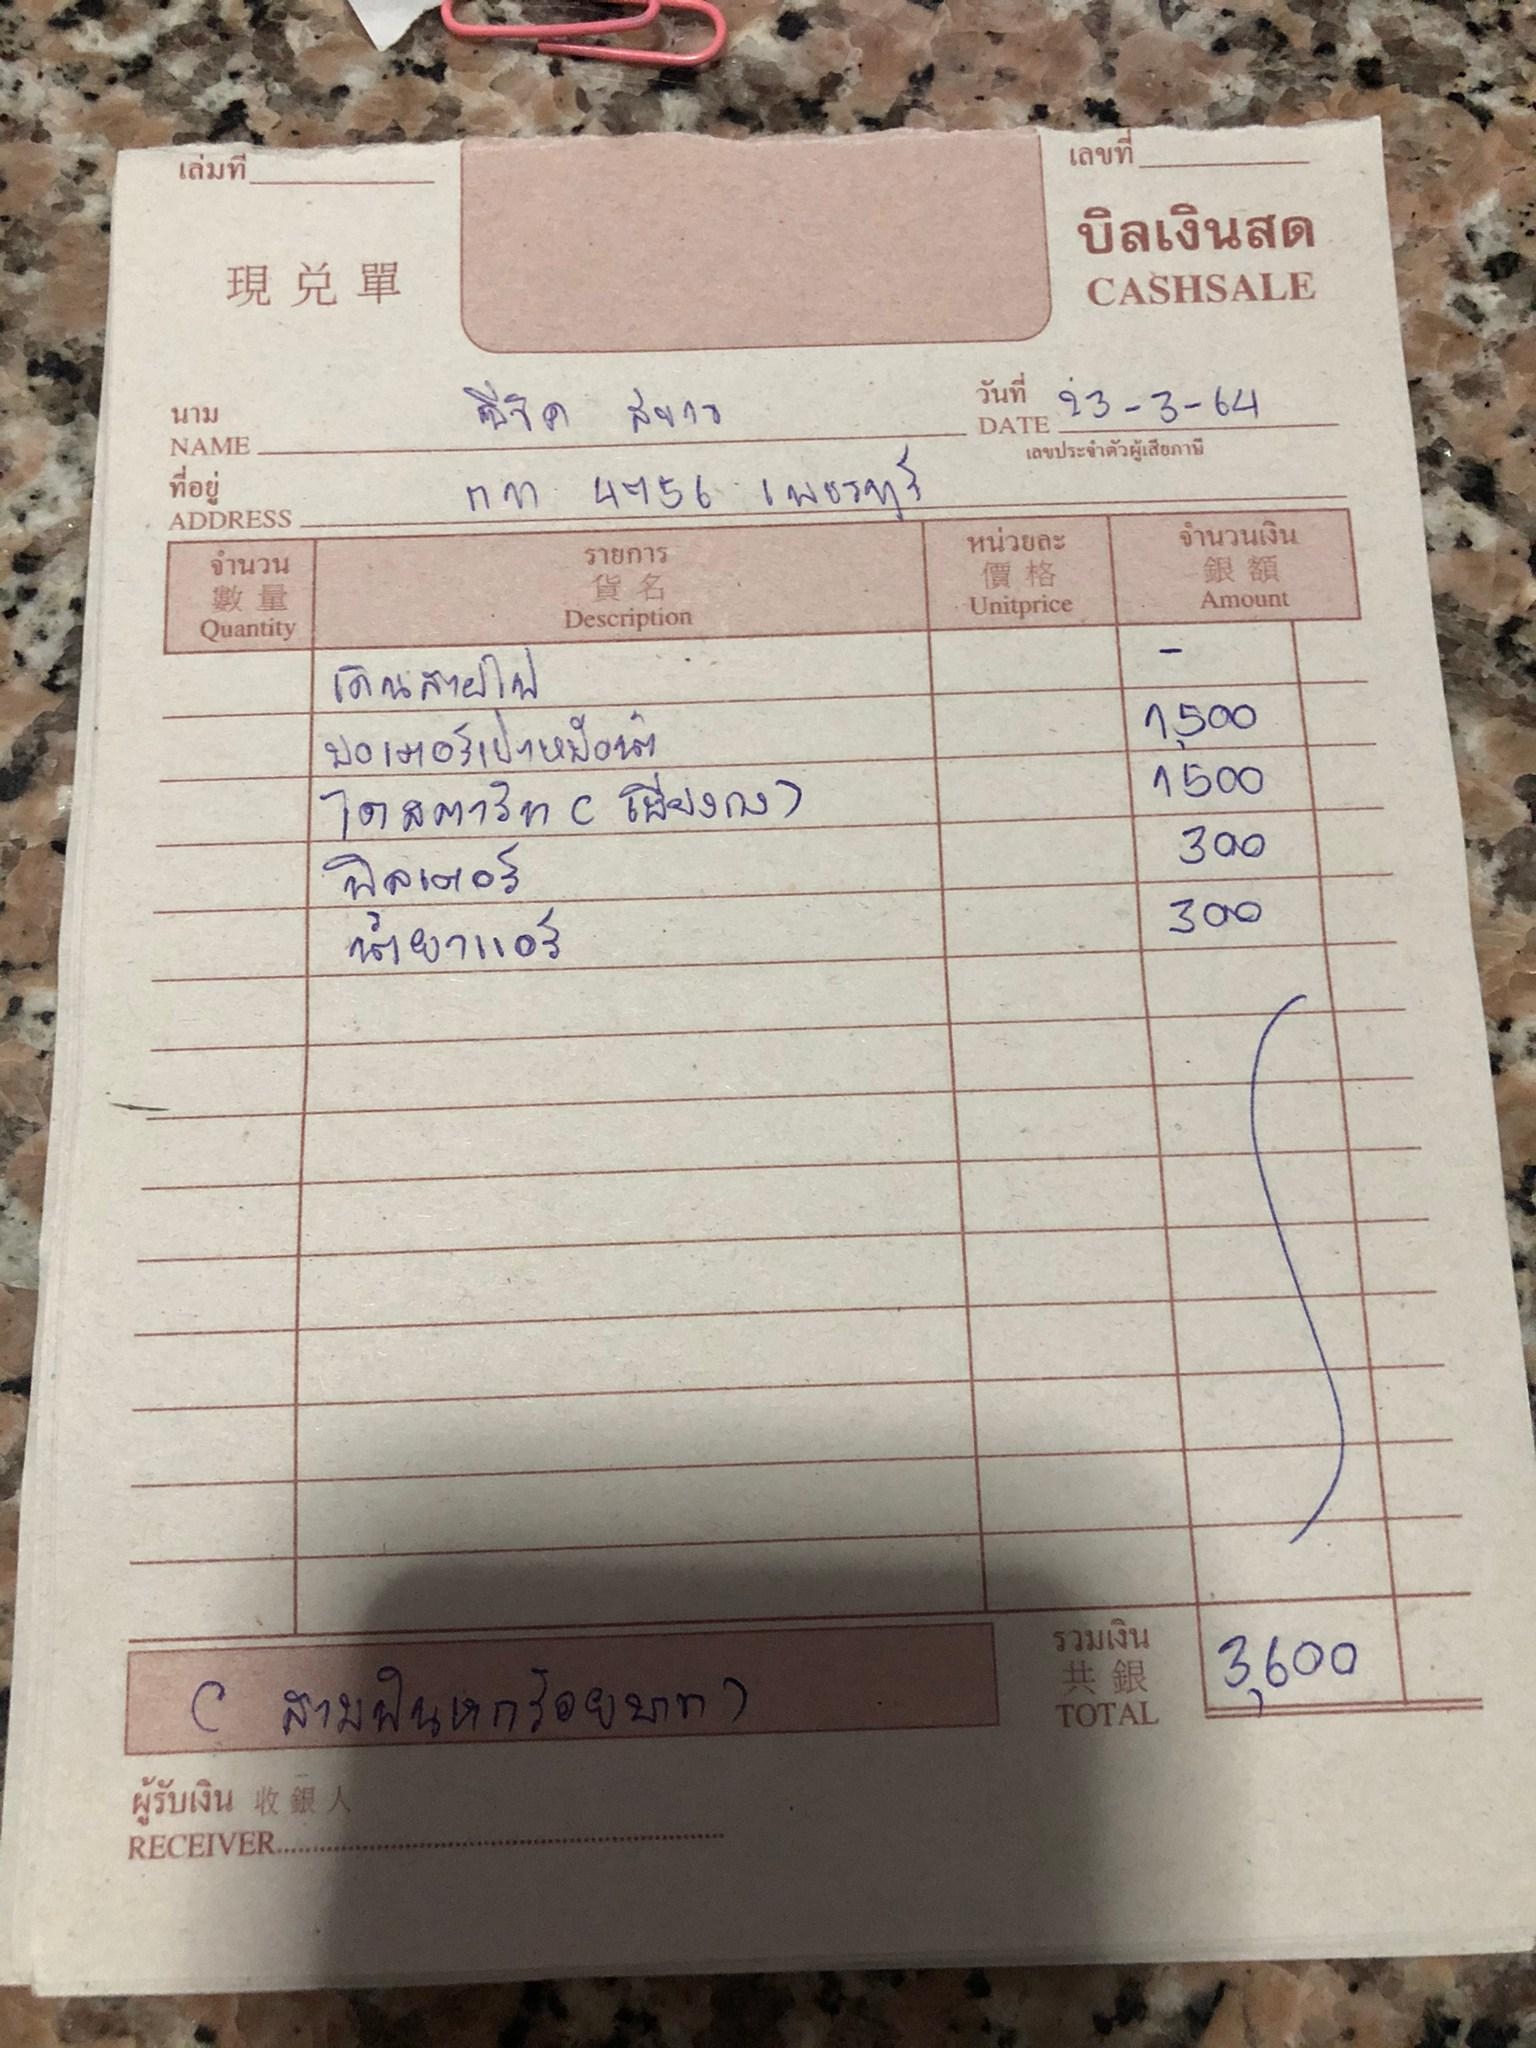 เล่มที่ เลขที่
現兑單 บิลเงินสด
CASHSALE
นาม ซีวิค สีขาว วันที่ 23-3-64
NAME DATE
เลขประจำตัวผู้เสียภาษี
ที่อยู่ กท 4756 เพชรบุรี
ADDRESS
จำนวน รายการ หน่วยละ จำนวนเงิน
數量 貨名 價格 銀額
Quantity Description Unitprice Amount
เดินสายไฟ -
มอเตอร์เป่าหม้อน้ำ 1,500
ไดสตาร์ท (เซียงกง) 1500
ฟิลเตอร์ 300
น้ำยาแอร์ 300
(สามพันหกร้อยบาท) รวมเงิน 3,600
共銀
TOTAL
ผู้รับเงิน 收銀人
RECEIVER